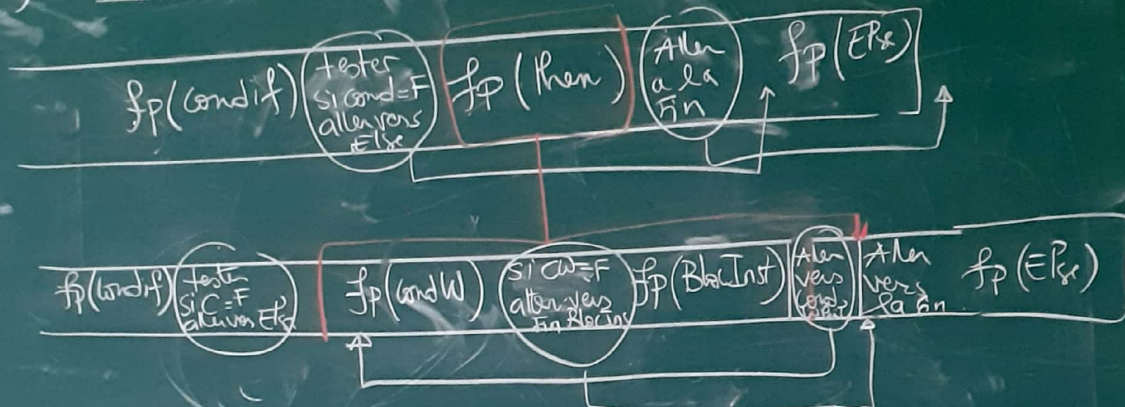 fp(condif)
tester
si cond=F
aller vers
Else
fp(then)
Aller
a la
Fin
fp(Else)
fp(condif)
tester
si C=F
aller vers Else
fp(condW)
si CW=F
aller vers
Fin BlocIns
fp(BlocInst)
Aller
vers
condW
Aller
vers
la fin
fp(Else)